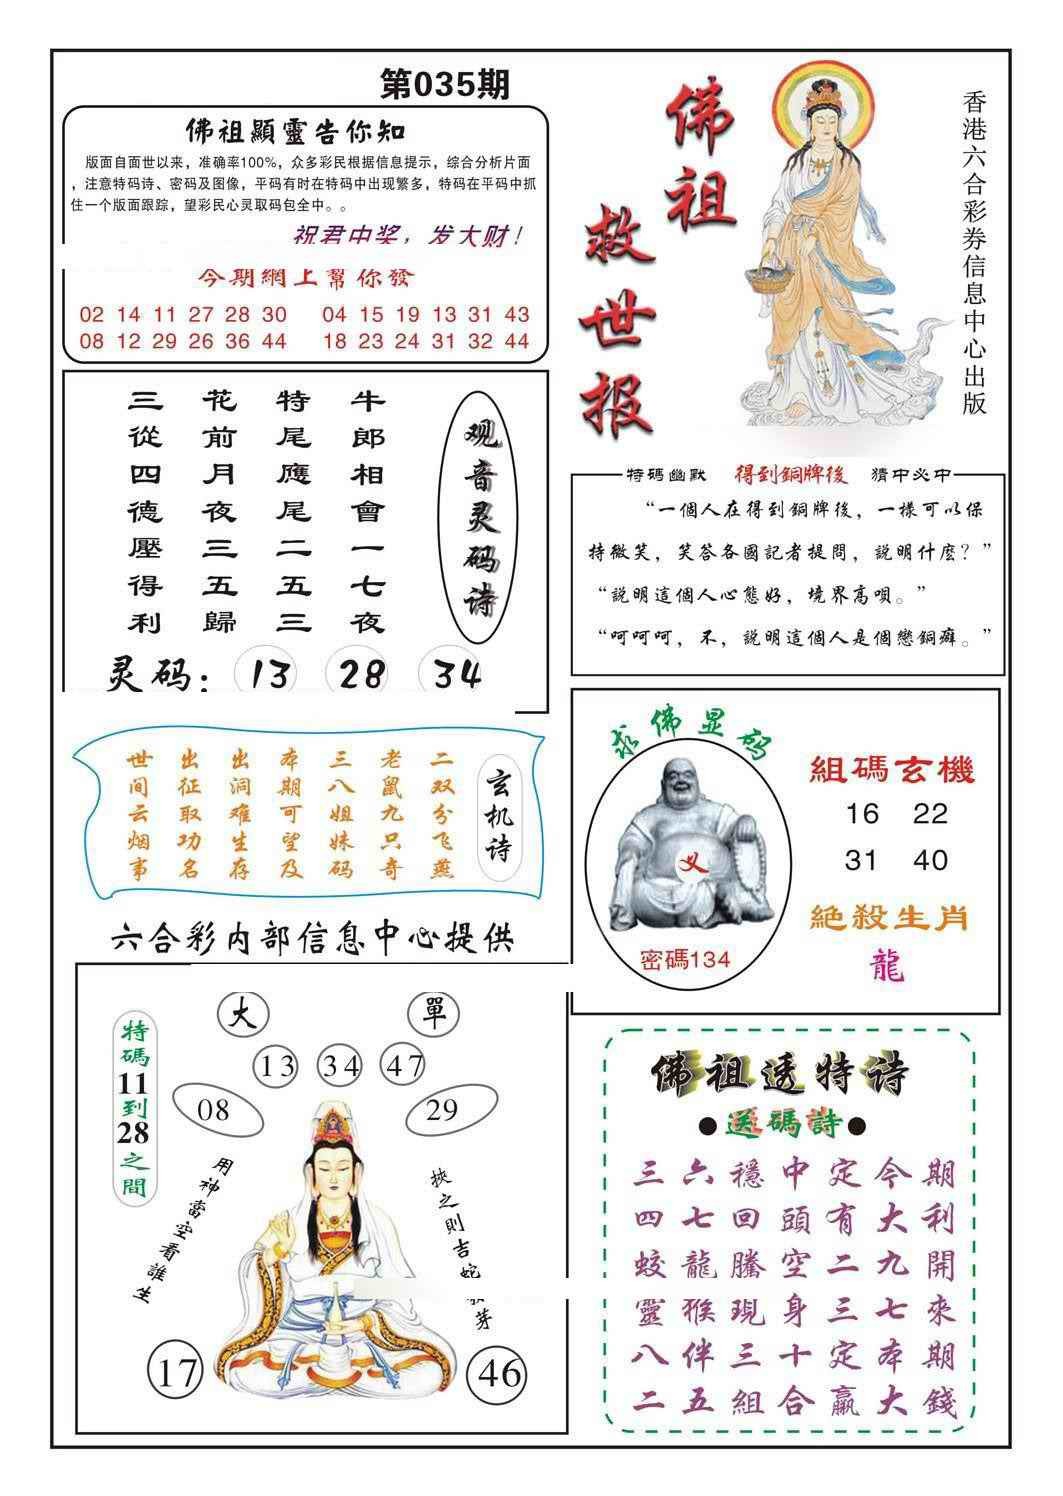 第035期
佛祖顯靈告你知
版面自面世以来，准确率100%，众多彩民根据信息提示，综合分析片面
，注意特码诗、密码及图像，平码有时在特码中出现繁多，特码在平码中抓
住一个版面跟踪，望彩民心灵取码包全中。。
祝君中奖，发大财！
今期網上幫你發
02 14 11 27 28 30 04 15 19 13 31 43
08 12 29 26 36 44 18 23 24 31 32 44
佛祖
救世报
香港六合彩券信息中心出版
观音灵码诗
牛郎相會一七夜
特尾應尾二五三
花前月夜三五歸
三從四德壓得利
灵码：13 28 34
特碼幽默 得到銅牌後 猜中必中
“一個人在得到銅牌後，一樣可以保
持微笑，笑答各國記者提問，説明什麽？”
“説明這個人心態好，境界高唄。”
“呵呵呵，不，説明這個人是個戀銅癖。”
玄机诗
二双分飞燕
老鼠九只奇
三八姐妹码
本期可望及
出洞难生存
出征取功名
世间云烟事
求佛显码
密碼134
組碼玄機
16 22
31 40
絶殺生肖
龍
六合彩内部信息中心提供
特碼11到28之間
大 單
13 34 47
08 29
用神當空看誰生
挾之則吉蛇
芽
17 46
佛祖透特诗
●送碼詩●
三六穩中定今期
四七回頭有大利
蛟龍騰空二九開
靈猴現身三七來
八伴三十定本期
二五組合贏大錢